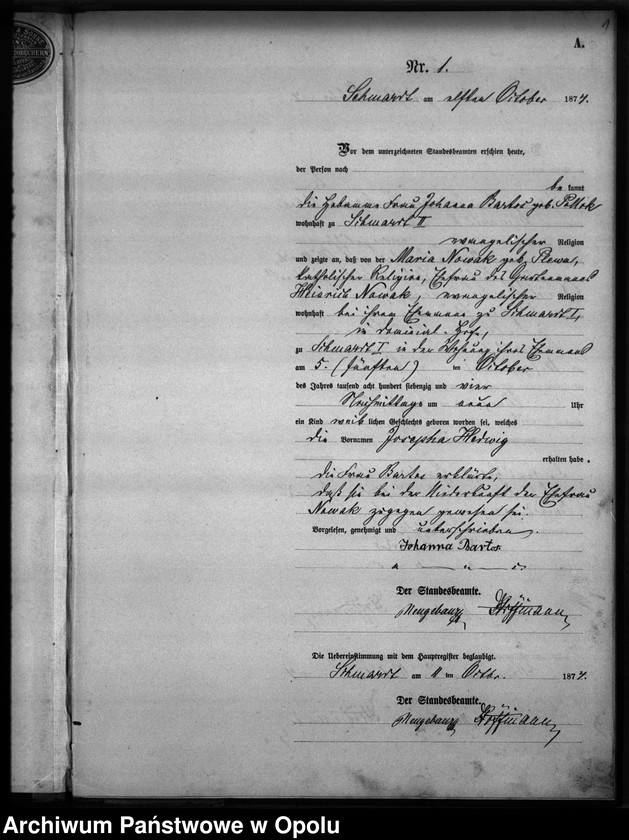 1
A.
Nr. 1.
Schmardt am elften October 1874.
Vor dem unterzeichneten Standesbeamten erschien heute,
der Person nach
bekannt
die Hebamme Frau Johanna Bartos geb. Pollok
wohnhaft zu Schmardt II
evangelischer Religion
und zeigte an, daß von der Maria Nowak geb. Plewa,
katholischer Religion, Ehefrau des
Heinrich Nowak, evangelischer Religion
wohnhaft bei ihrem Ehemann zu Schmardt I,
in dominial-Hofe,
zu Schmardt I in der Wohnung ihres Ehemann
am 5. (fünften) ten October
des Jahres tausend acht hundert siebenzig und vier
Nachmittags um neun Uhr
ein Kind weiblichen Geschlechts geboren worden sei, welches
die Vornamen Josepha Hedwig
erhalten habe.
die Frau Bartos erklärte,
daß sie bei der Niederkunft der Ehefrau
Nowak zugegen gewesen sei.
Vorgelesen, genehmigt und unterschrieben.
Johanna Bartos
Der Standesbeamte.
Hoffmann
Die Uebereinstimmung mit dem Hauptregister beglaubigt.
Schmardt am 11 ten Octbr. 1874.
Der Standesbeamte.
Hoffmann
Archiwum Państwowe w Opolu